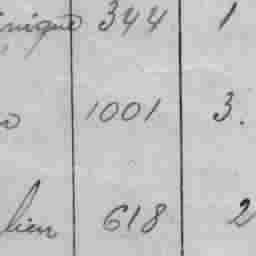 nique 344 1
o 1001 3.
lien 618 2